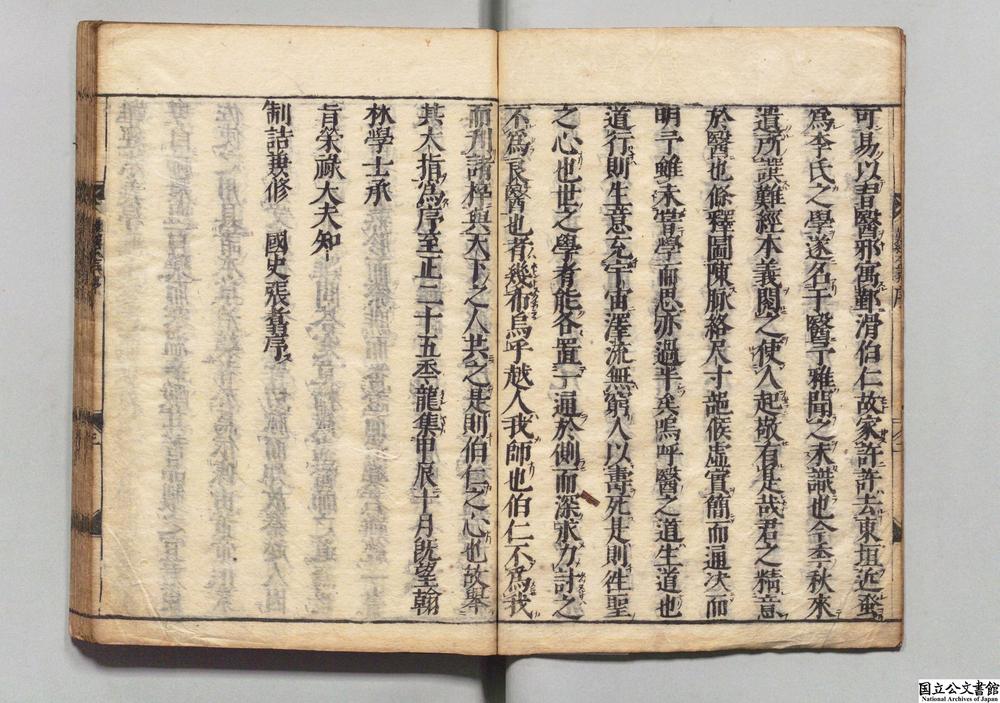 可易以言醫邪寓鄞滑伯仁故家許許去東垣近蚤
爲李氏之學遂名于醫予雅聞之未識也今季秋來
遺所譔難經本義閱之使人起敬有是哉君之精意
於醫也條釋圖陳脉絡尺寸部候虛實簡而通決而
明予雖未嘗學而思亦過半矣嗚呼醫之道生道也
道行則生意充宇宙澤流無窮人以壽死是則徃聖
之心也世之學者能各置一通於側而深求力討之
不爲良醫也者幾希烏乎越人我師也伯仁不爲我
而刋諸梓與天下之人共之是則伯仁之心也故舉
其大指爲序至正二十五季龍集甲辰十月旣望翰
林學士承
旨榮祿大夫知
制誥兼修　國史張翥序
国立公文書館
National Archives of Japan